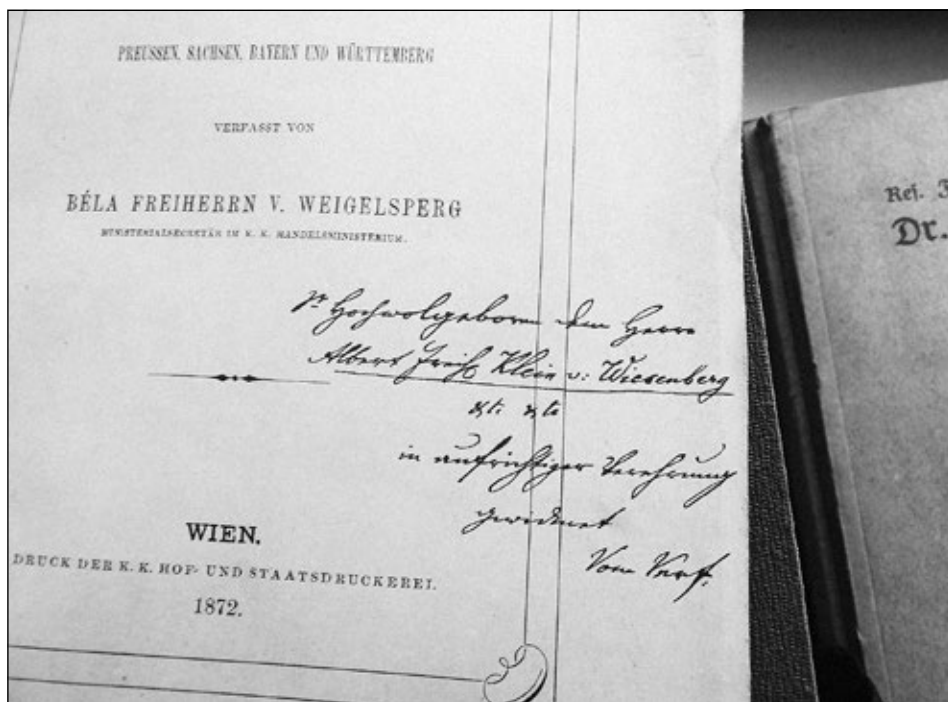 PREUSSEN, SACHSEN, BAYERN UND WÜRTTEMBERG
VERFASST VON
BÉLA FREIHERRN V. WEIGELSPERG
MINISTERIALSECRETÄR IM K. K. HANDELSMINISTERIUM.
Sr Hochwolgeboren dem Herrn
Albert Freih Klein v: Wiesenberg
&t. &t.
in aufrichtiger Verehrung
gewidmet
Vom Verf.
WIEN.
DRUCK DER K. K. HOF- UND STAATSDRUCKEREI.
1872.
Ref.
Dr.